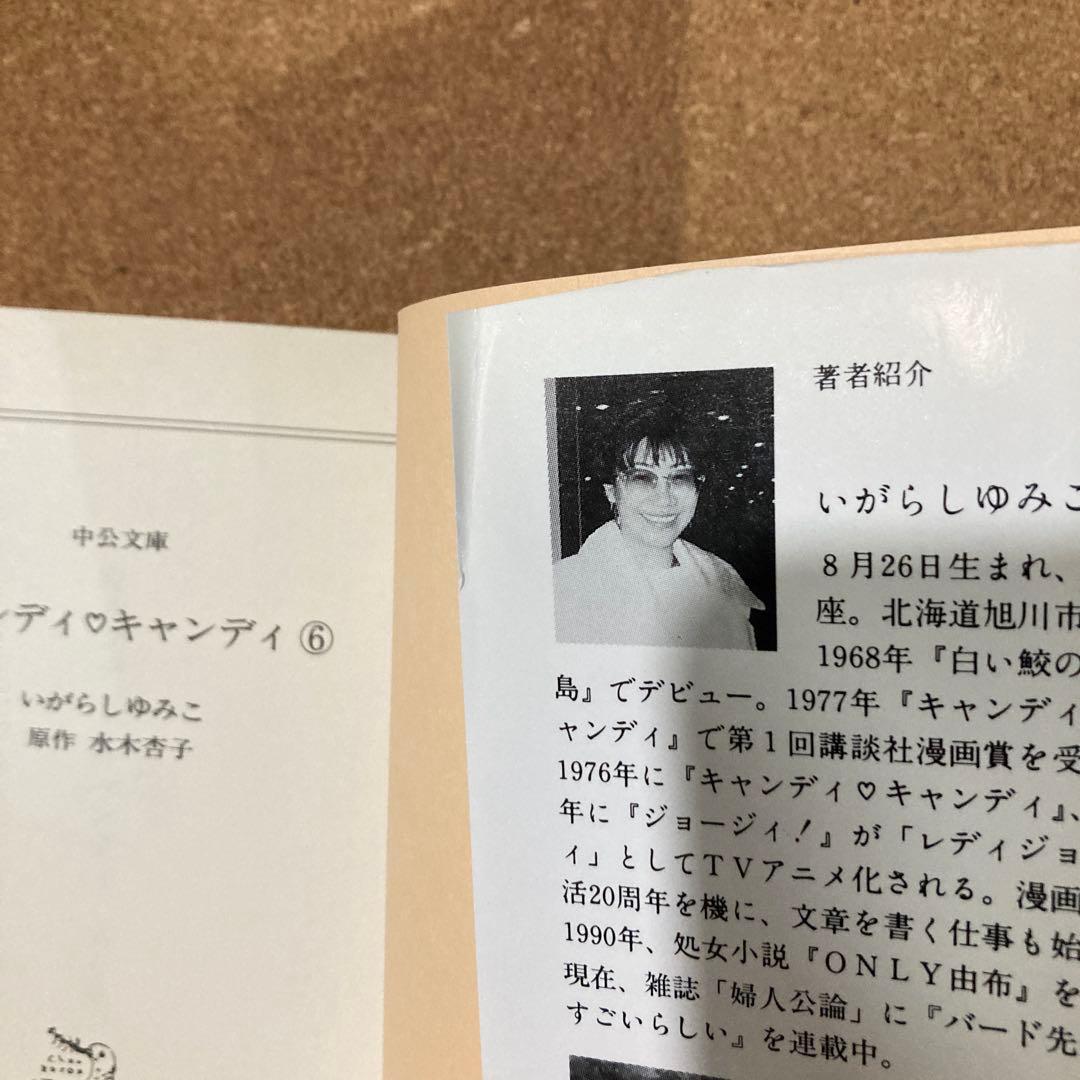 中公文庫
ンディ♡キャンディ ⑥
いがらしゆみこ
原作 水木杏子
著者紹介
いがらしゆみこ
8月26日生まれ、
座。北海道旭川市
1968年『白い鮫の
島』でデビュー。1977年『キャンディ
ャンディ』で第1回講談社漫画賞を受
1976年に『キャンディ♡キャンディ』、
年に『ジョージィ!』が「レディジョ
ィ」としてTVアニメ化される。漫画
活20周年を機に、文章を書く仕事も始
1990年、処女小説『ONLY由布』を
現在、雑誌「婦人公論」に『バード先
すごいらしい』を連載中。